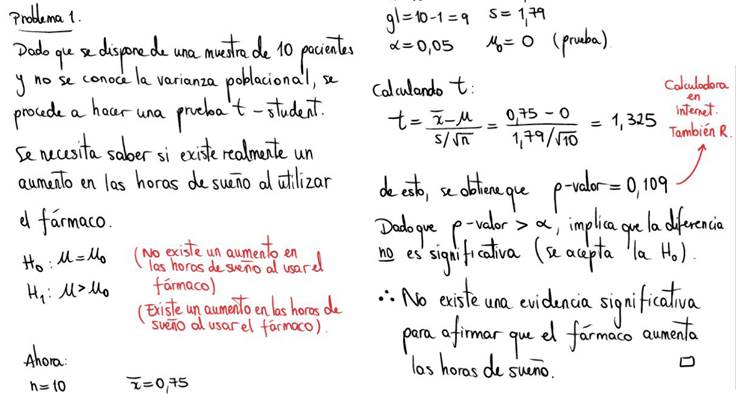 Problema 1.
Dado que se dispone de una muestra de 10 pacientes
y no se conoce la varianza poblacional, se
procede a hacer una prueba t-student.
Se necesita saber si existe realmente un
aumento en las horas de sueño al utilizar
el fármaco.
H₀: μ=μ₀ (No existe un aumento en
las horas de sueño al usar el
fármaco)
H₁: μ>μ₀ (Existe un aumento en las horas de
sueño al usar el fármaco).
Ahora:
n=10 x̄=0,75
gl=10-1=9 s=1,79
α=0,05 μ₀=0 (prueba)
Calculando t:
t = (x̄-μ)/(s/√n) = (0,75-0)/(1,79/√10) = 1,325
Calculadora
en
internet.
También R.
de esto, se obtiene que p-valor=0,109
Dado que p-valor > α, implica que la diferencia
no es significativa (se acepta la H₀).
∴ No existe una evidencia significativa
para afirmar que el fármaco aumenta
las horas de sueño. □